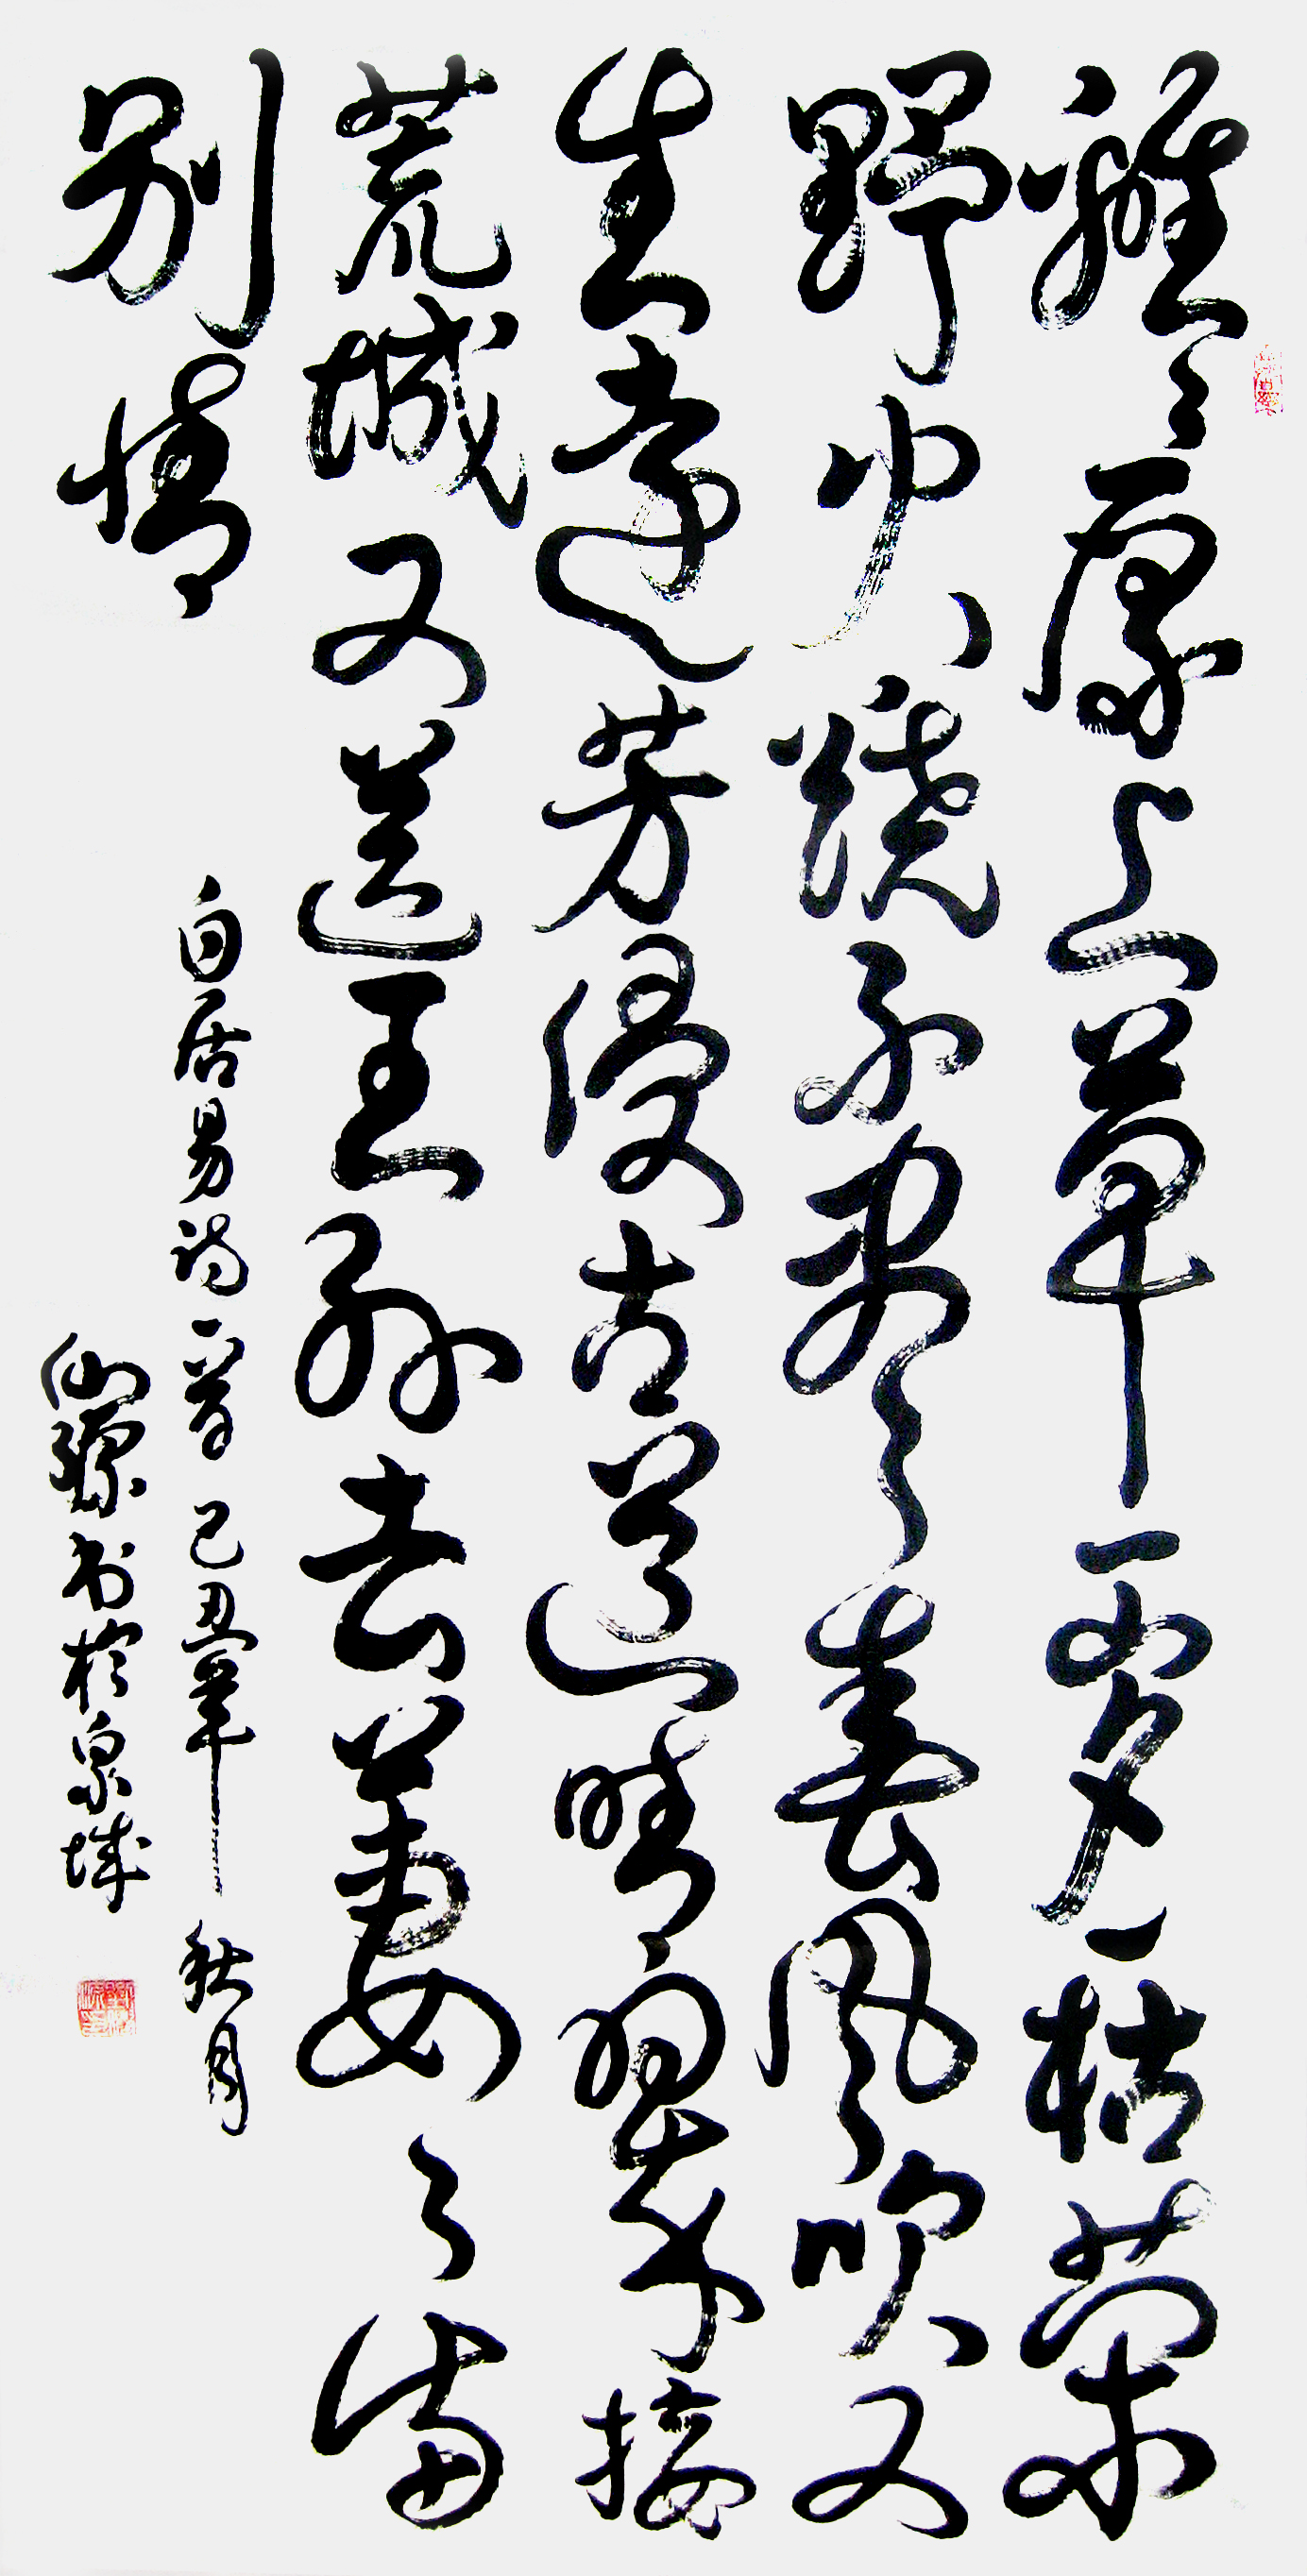 離々原上草一岁一枯荣
野火燒不尽春风吹又
生遠芳侵古道晴翠接
荒城又送王孙去萋々满
别情
白居易诗一首 己丑年 秋月
仙源书於泉城